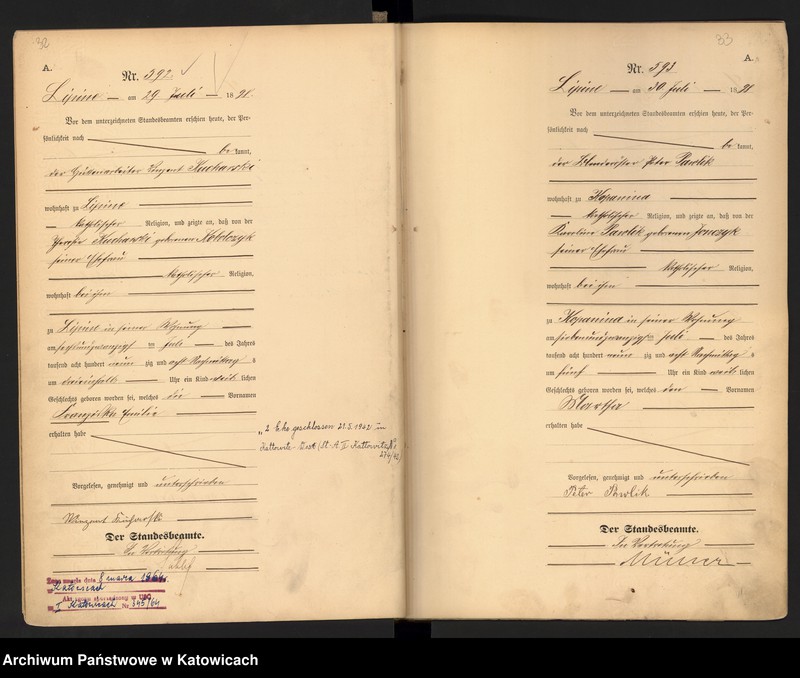 32
A.
Nr. 392.
Lipine am 29 Juli 1898.
Vor dem unterzeichneten Standesbeamten erschien heute, der Per-
sönlichkeit nach
be kannt,
der Hüttenarbeiter Vinzent Kucharski
wohnhaft zu Lipine
katholischer Religion, und zeigte an, daß von der
Kucharski geborenen
seiner Ehefrau
katholischer Religion,
wohnhaft bei ihm
zu Lipine in seiner Wohnung
am sechsundzwanzigsten Juli des Jahres
tausend acht hundert neun zig und acht Nachmittag s
um Uhr ein Kind weib lichen
Geschlechts geboren worden sei, welches die Vornamen
Franziska Emilie
erhalten habe
"2 Ehe geschlossen 21.5.1942 in
Kattowitz - (St. A. II Kattowitz No
274/42)
Vorgelesen, genehmigt und unterschrieben
Kucharski
Der Standesbeamte.
In Vertretung
Zgon dnia 8 marca 1964 r.
w Katowicach
Akt w USC
w I Katowicach Nr 845/64
33
A.
Nr. 393.
Lipine am 30 Juli 1898
Vor dem unterzeichneten Standesbeamten erschien heute, der Per-
sönlichkeit nach
be kannt,
der Peter Pawlik
wohnhaft zu Kopanina
katholischer Religion, und zeigte an, daß von der
Karoline Pawlik geborenen Jonczyk
seiner Ehefrau
katholischer Religion,
wohnhaft bei ihm
zu Kopanina in seiner Wohnung
am siebenundzwanzigsten Juli des Jahres
tausend acht hundert neun zig und acht Nachmittag s
um fünf Uhr ein Kind weib lichen
Geschlechts geboren worden sei, welches den Vornamen
Martha
erhalten habe
Vorgelesen, genehmigt und unterschrieben
Peter Pawlik
Der Standesbeamte.
In Vertretung
Archiwum Państwowe w Katowicach